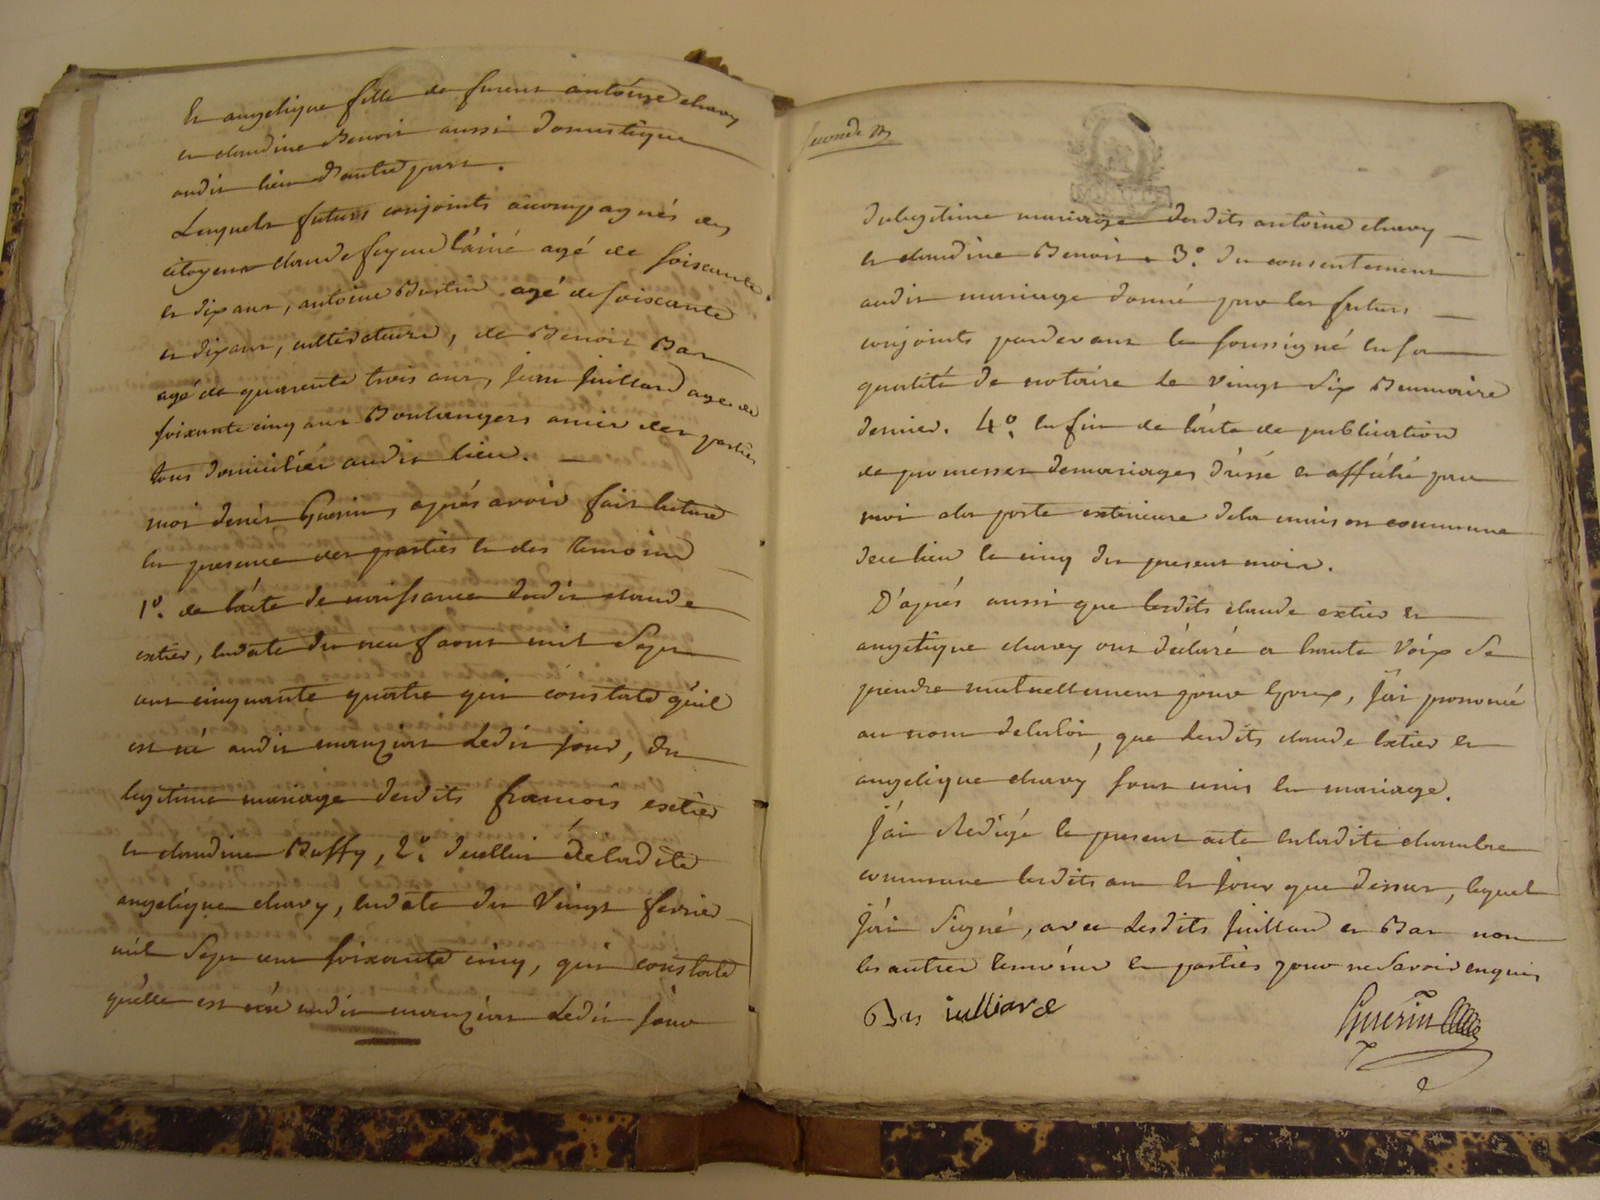 et angelique fille de furent antoine chavy
et claudine Benoit aussi domestique
audit lieu d'autre part.
Lesquels futurs conjoints accompagnés des
citoyens claude l'ainé agé de soixante
et dix ans, antoine agé de soixante
et dix ans, cultivateurs, de Benoit Bas
agé de quarante trois ans, jean juillard age de
soixante cinq ans Boulangers amis des parties
tous domiciliés audit lieu.
moi denis Guerin, après avoir fait lecture
en presence des parties et des temoins
1°. de l'acte de naissance dudit claude
extier, en date du neuf aout mil Sept
cent cinquante quatre qui constate qu'il
est né audit ledit jour, du
legitime mariage desdits francois extier
et claudine Buffy, 2°. decelui de ladite
angelique chavy, en date du Vingt fevrier
mil Sept cent soixante cinq, qui constate
qu'elle est née audit ledit jour
seconde
du legitime mariage desdits antoine chavy
et claudine Benoit. 3°. du consentement
audit mariage donné par les futurs
conjoints pardevant le soussigné en sa
qualité de notaire le vingt Six Brumaire
dernier. 4°. enfin de l'acte de publication
de promesses demariages dréssé et affiché par
moi a la porte exterieure dela maison commune
de ce lieu le cinq du present mois.
D'aprés aussi que lesdits claude extier et
angelique chavy ont déclaré a haute Voix Se
prendre mutuellement pour Epoux, J'ai prononcé
au nom delaloi, que lesdits claude Extier et
angelique chavy sont unis en mariage.
J'ai Redigé le present acte enladite chambre
commune lesdits an et jour que dessus, lequel
J'ai Signé, avec lesdits juillard et Bas non
les autres temoins et parties pour ne Savoir enquis
Bas iulliard
Guerin